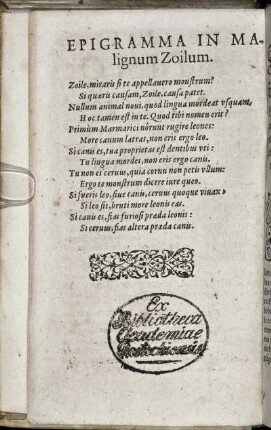 EPIGRAMMA IN MA-
lignum Zoilum.
Zoile, miraris si te appellauero monstrum?
Si quæris causam, Zoile, causa patet.
Nullum animal noui, quod lingua mordeat vsquam,
Hoc tamen est in te. Quod tibi nomen erit?
Primùm Marmarici nôrunt rugire leones:
More canum latras, non eris ergo leo.
Si canis es, tua proprietas est dentibus vti:
Tu lingua mordes, non eris ergo canis.
Tu non es ceruus, quia cornu non petis vllum:
Ergo te monstrum dicere iure queo.
Si fueris leo, siue canis, ceruus quoque viuax,
Si leo sis, bruti more leonis eas.
Si canis es, fias furiosi præda leonis:
Si ceruus, fias altera præda canis.
Ex
Bibliotheca
Academiae
Rostochiensis